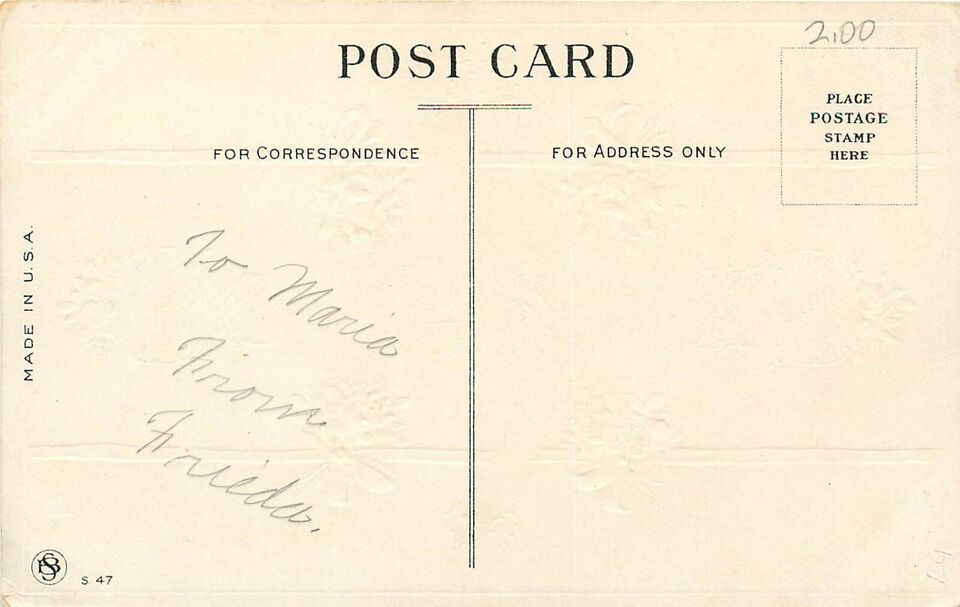 2.00
POST CARD
PLACE
POSTAGE
STAMP
HERE
FOR CORRESPONDENCE
FOR ADDRESS ONLY
MADE IN U.S.A.
To Maria
From
Frieda.
S. 47